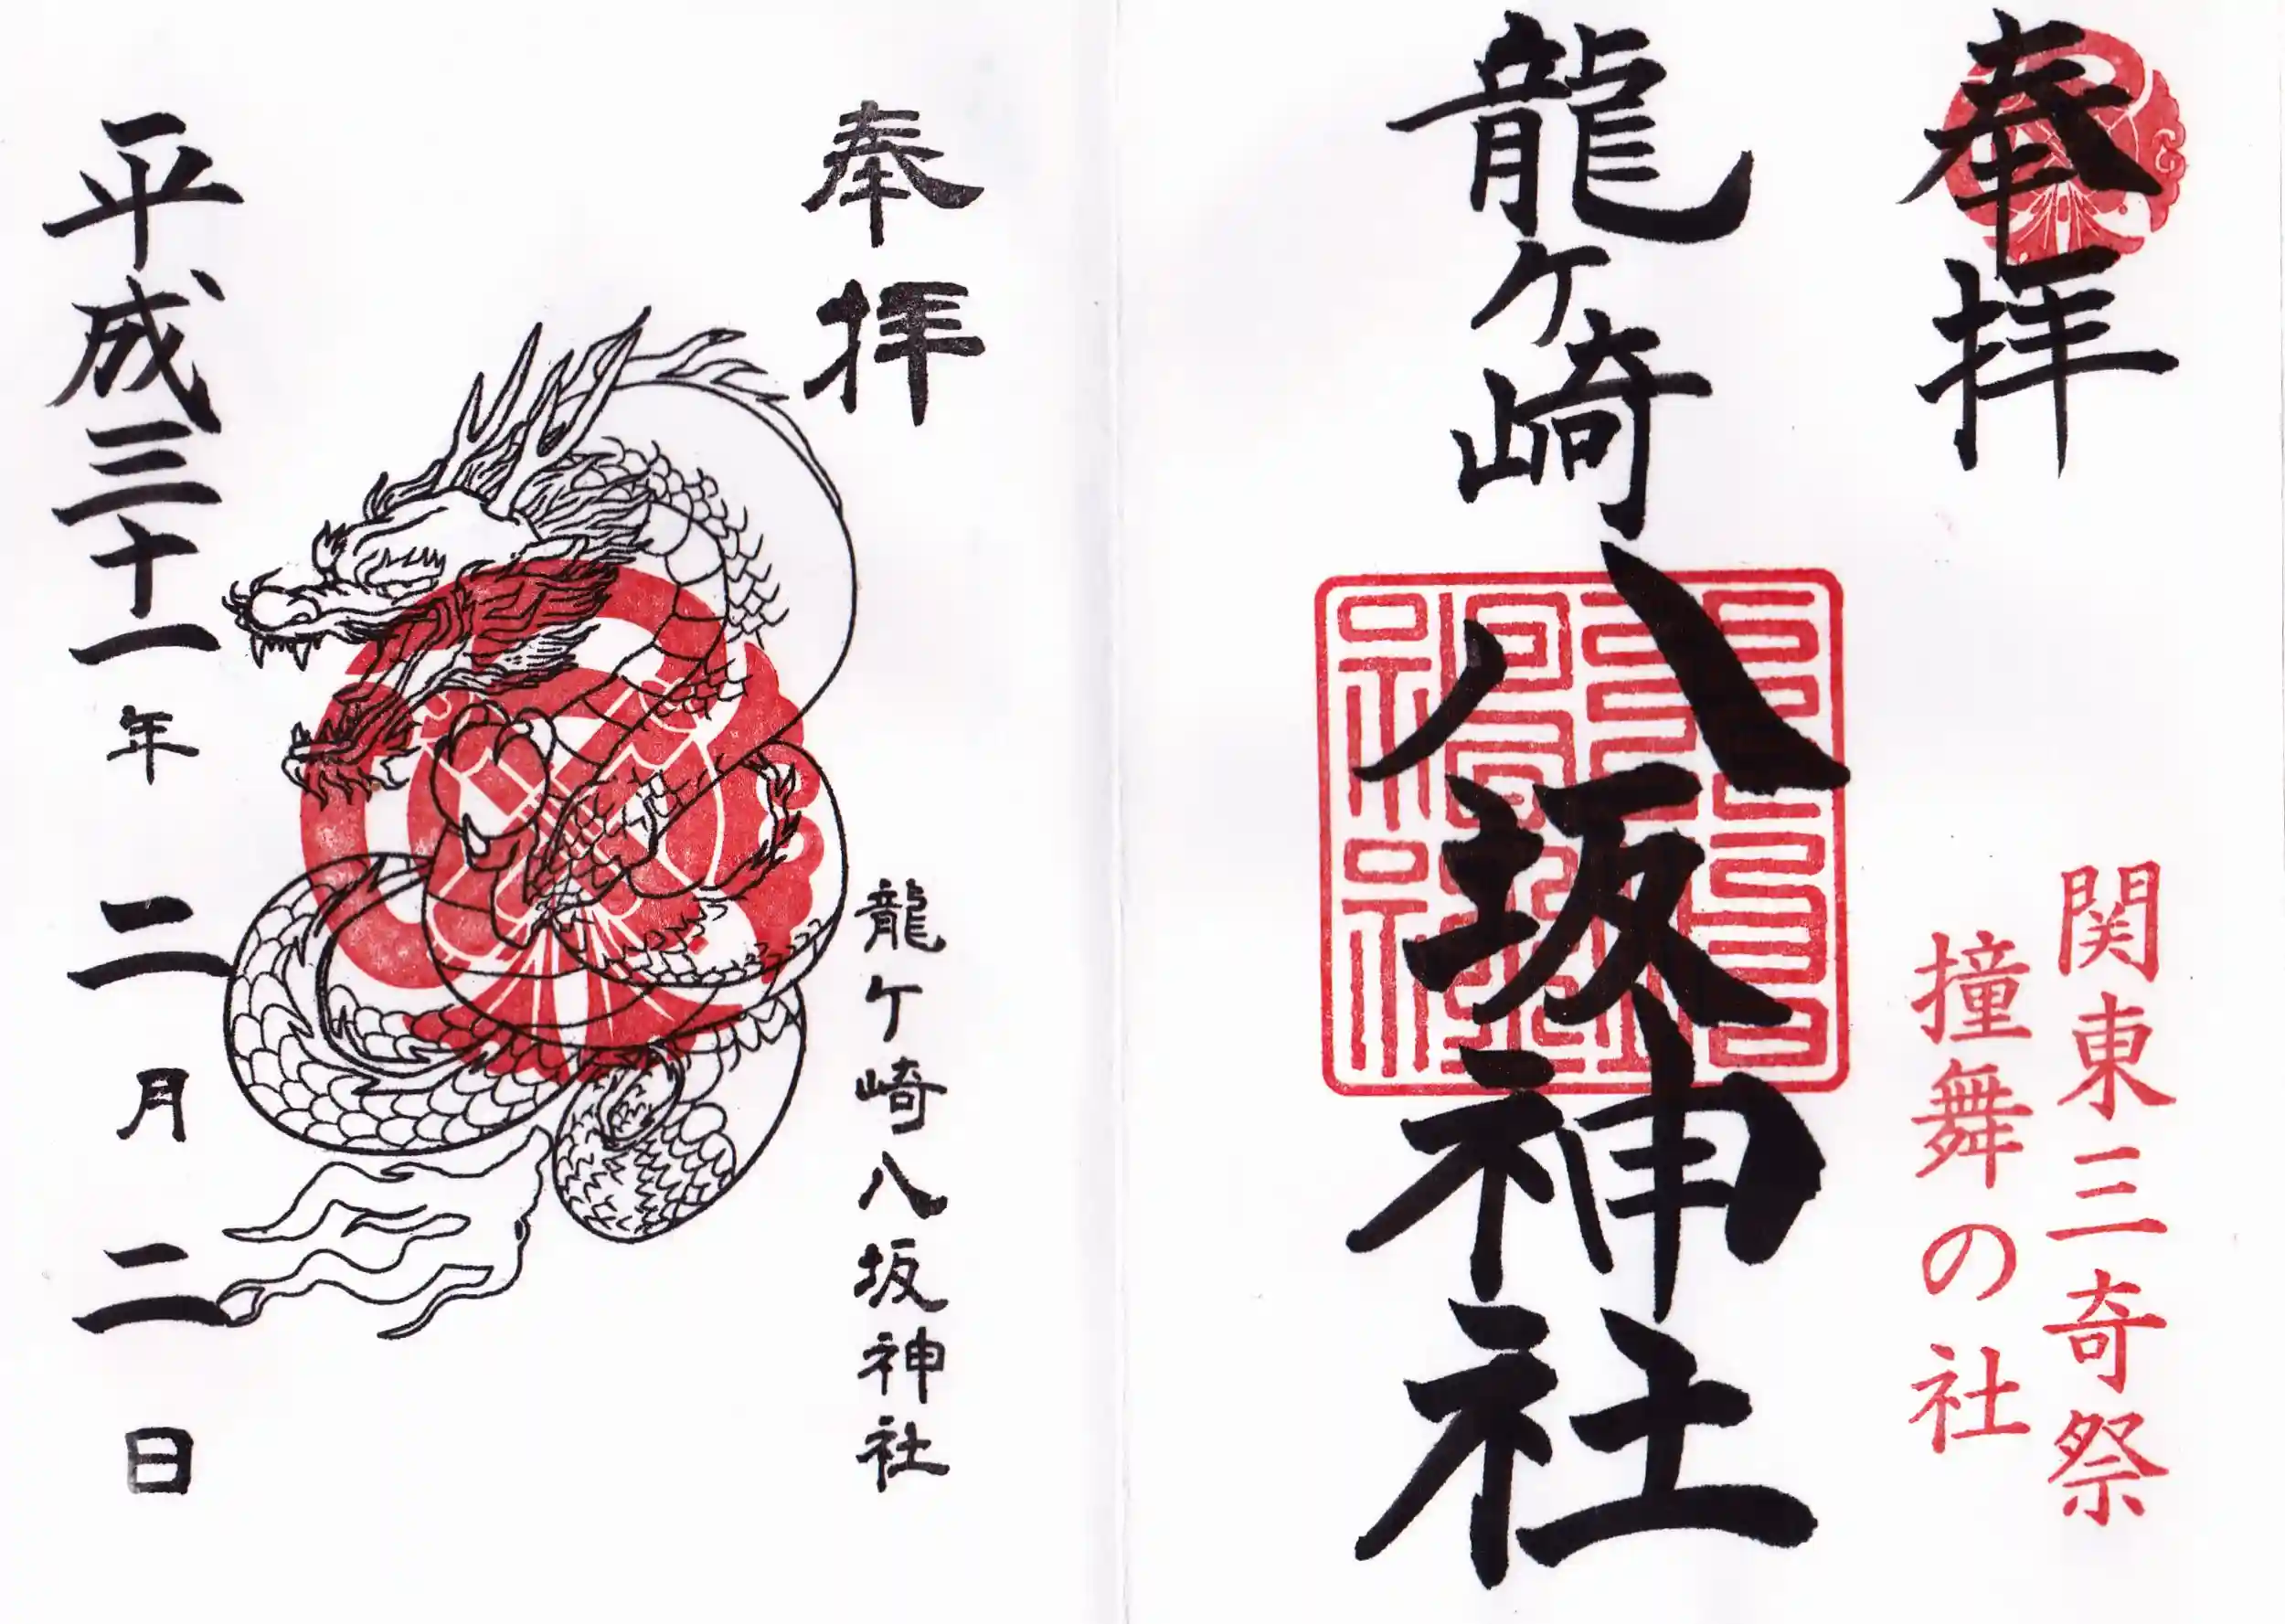 奉拝
関東三奇祭
撞舞の社
龍ケ崎八坂神社
奉拝
龍ケ崎八坂神社
平成三十一年二月二日